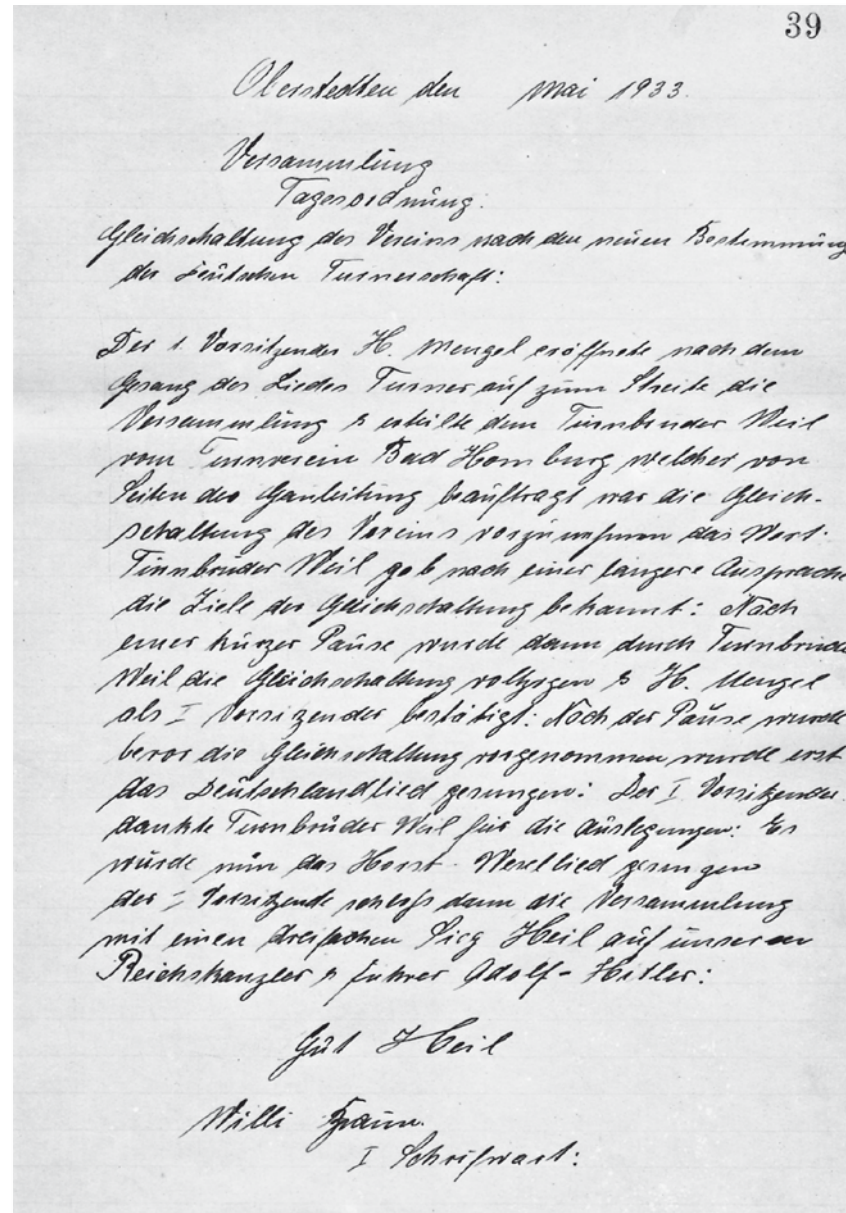 39
Oberstedten den Mai 1933.
Versammlung
Tagesordnung:
Gleichschaltung des Vereins nach den neuen Bestimmung
der Deutschen Turnerschaft:
Der 1. Vorsitzender H. Mengel eröffnete nach dem
Gesang des Liedes Turner auf zum Streite die
Versammlung & erteilte dem Turnbruder Weil
vom Turnverein Bad Homburg welcher von
Seiten der Gauleitung beauftragt war die Gleich-
schaltung des Vereins vorzunehmen das Wort:
Turnbruder Weil gab nach einer längere Aussprache
die Ziele der Gleichschaltung bekannt: Nach
einer kurzer Pause wurde dann durch Turnbruder
Weil die Gleichschaltung vollzogen & H. Mengel
als I Vorsizender bestätigt: Noch der Pause wurde
bevor die Gleichschaltung vorgenommen wurde erst
das Deutschlandlied gesungen: Der I. Vorsitzender
dankte Turnbruder Weil für die Auslegungen: Es
wurde nun das Horst-Wesellied gesungen
der I Vorsitzende schloß dann die Versammlung
mit einen dreifachen Sieg Heil auf unseren
Reichskanzler & Führer Adolf-Hitler:
Gut Heil
Willi
I Schrifwart: